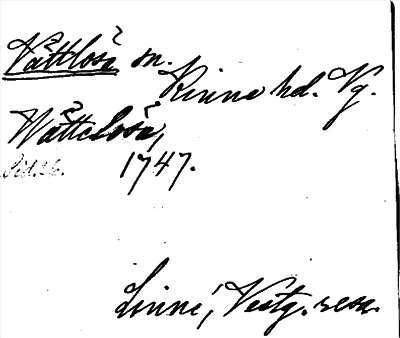 Vättlösa sn.
Kinne hd. Vg.
Wättelösa,
Sid. 26. 1747.
Linné, Vestg. resa.